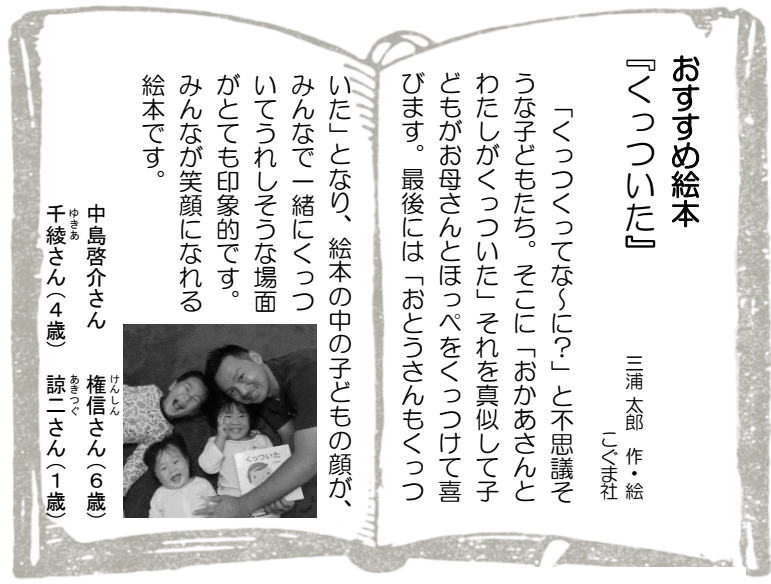 おすすめ絵本
『くっついた』
三浦 太郎 作・絵
こぐま社
「くっつくってな～に？」と不思議そ
うな子どもたち。そこに「おかあさんと
わたしがくっついた」それを真似して子
どもがお母さんとほっぺをくっつけて喜
びます。最後には「おとうさんもくっつ
いた」となり、絵本の中の子どもの顔が、
みんなで一緒にくっつ
いてうれしそうな場面
がとても印象的です。
みんなが笑顔になれる
絵本です。
くっついた
中島啓介さん 権信さん（６歳）
けんしん
千綾さん（４歳） 諒二さん（１歳）
ゆきあ あきつぐ